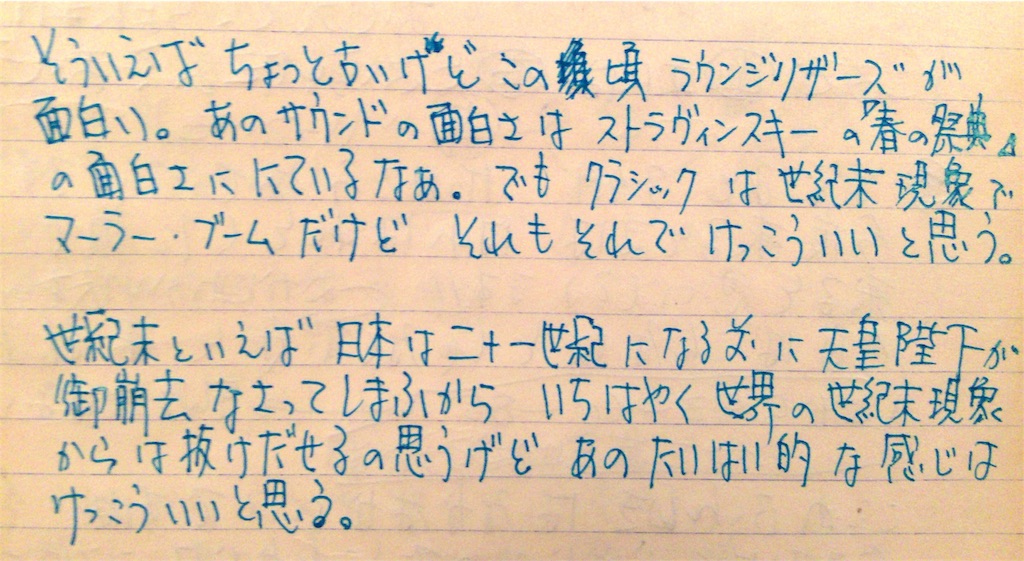 そういえば ちょっと古いけど この頃 ラウンジリザーズが
面白い。あのサウンドの面白さは ストラヴィンスキーの『春の祭典』
の面白さに にているなぁ。でも クラシックは世紀末現象で
マーラー・ブームだけど それもそれで けっこういいと思う。
世紀末といえば 日本は二十一世紀になる前に天皇陛下が
御崩去なさってしまふから いちはやく世界の世紀末現象
からは抜けだせるの思うけど あのたいはい的な感じは
けっこういいと思る。